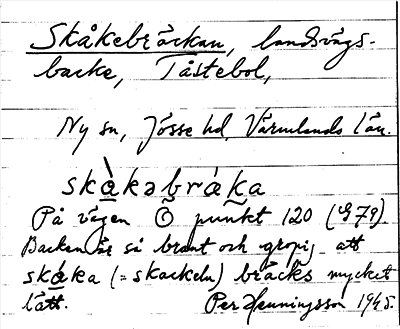 Skåkebräckan, landsvägs-
backe, Tåstebol,
Ny sn, Jösse hd, Värmlands län.
skàkəbráka
På vägen Ö punkt 120 (G 79).
Backen är så brant och gropig att
skåka (= skackeln) bräcks mycket
lätt. Per Henningsson 1945.